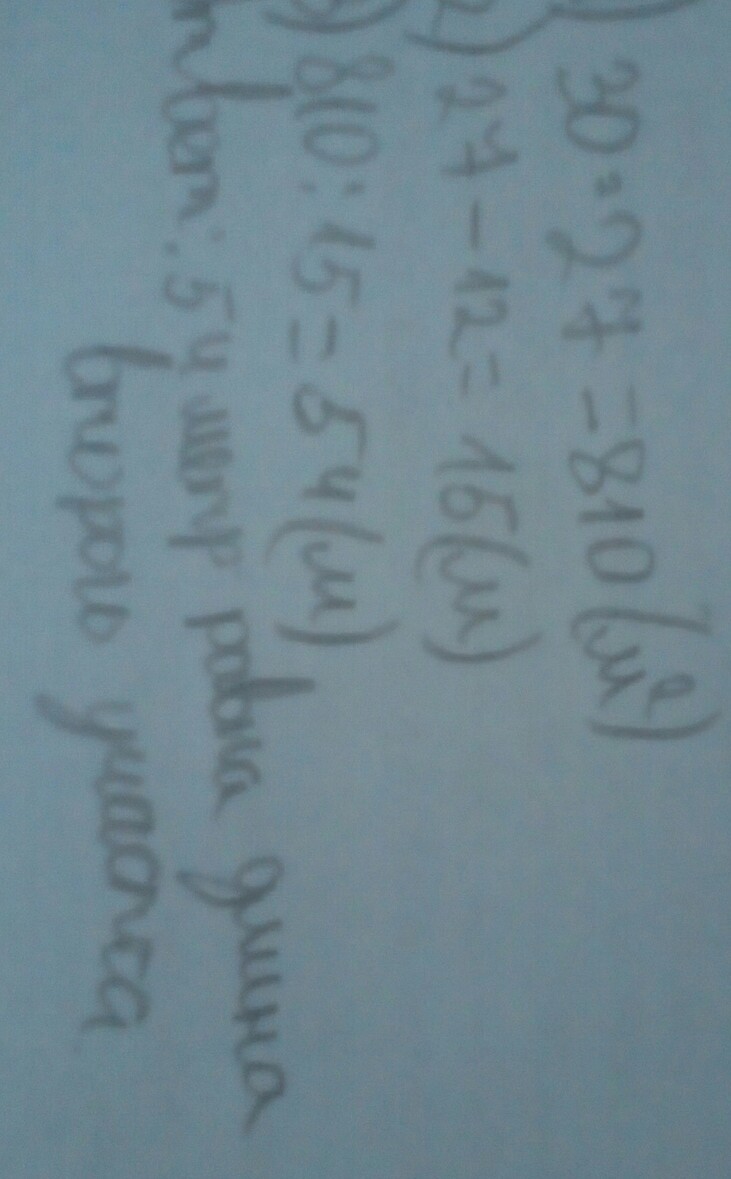 1) 30·27=810(м²)
2) 27-12=15(м)
3) 810:15=54(м)
Ответ: 54 метр равна длина
второго участка